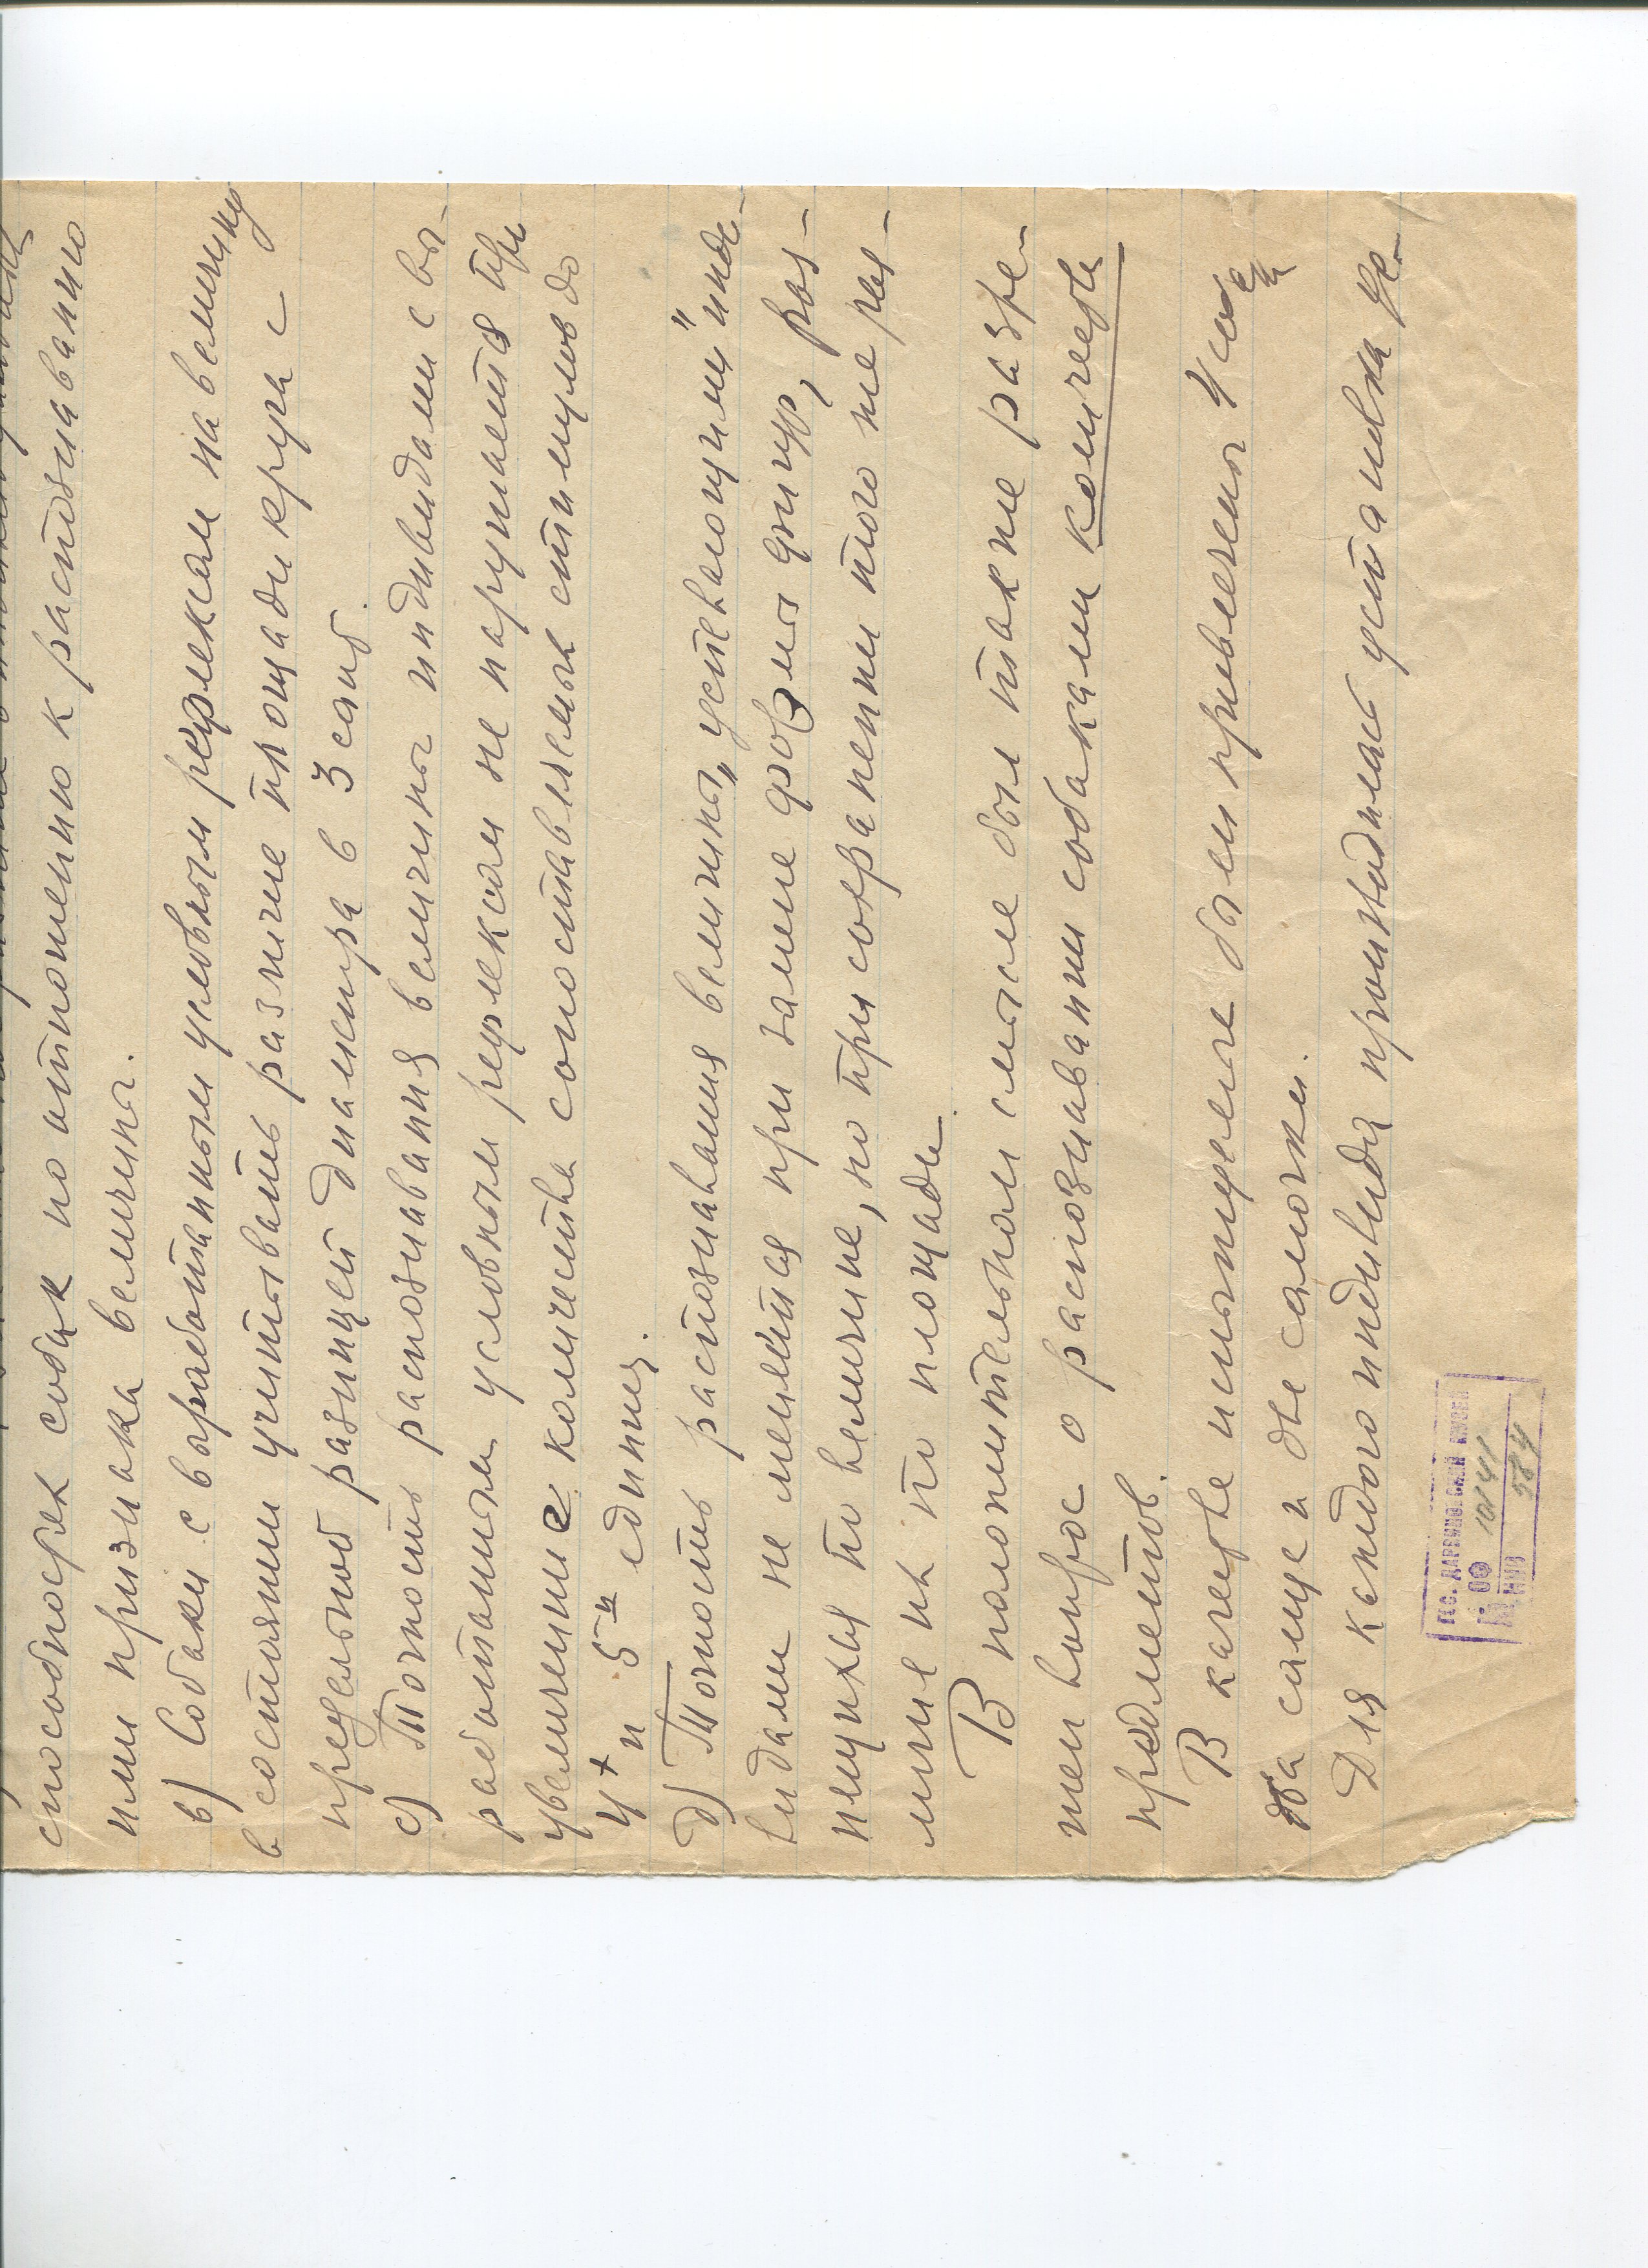 способностей собак по отношению к распознаванию
ими признака величины.
в) Собаки с выработанным условным рефлексам на величину
в состоянии учитывать различие площади круга с
предельной разницей диаметра в 3 сант.
с) Точность распознавания величины индивидами с вы-
работанным условным рефлексом не нарушается при
увеличение количества сопоставляемых стимулов до
4х и 5-и единиц.
д) Точность распознавания величины „успевающими" инди-
видами не меняется при замене формы фигур, раз-
нящихся по величине, но при сохранении того же раз-
личия их по площади.
В положительном смысле был также разре-
шен вопрос о распознавании собаками количества
предметов.
В качестве испытуемые были привлечены 4 соб
два самца и две самочки.
Для каждого индивида производилась установка де-
ГОС. ДАРВИНОВСКИЙ МУЗЕЙ
№ ОФ 10141
НИВ 984